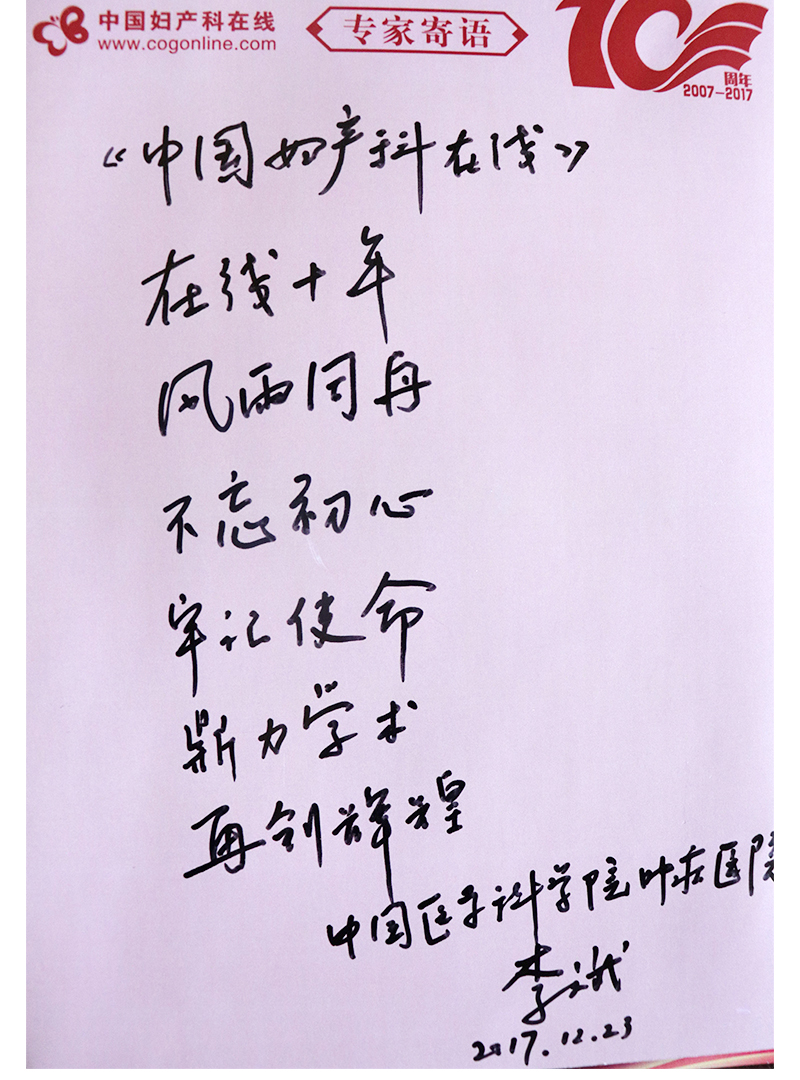 中国妇产科在线
www.cogonline.com
专家寄语
10
周年
2007-2017
《中国妇产科在线》
在线十年
风雨同舟
不忘初心
牢记使命
鼎力学术
再创辉煌
中国医学科学院肿瘤医院
李斌
2017.12.23